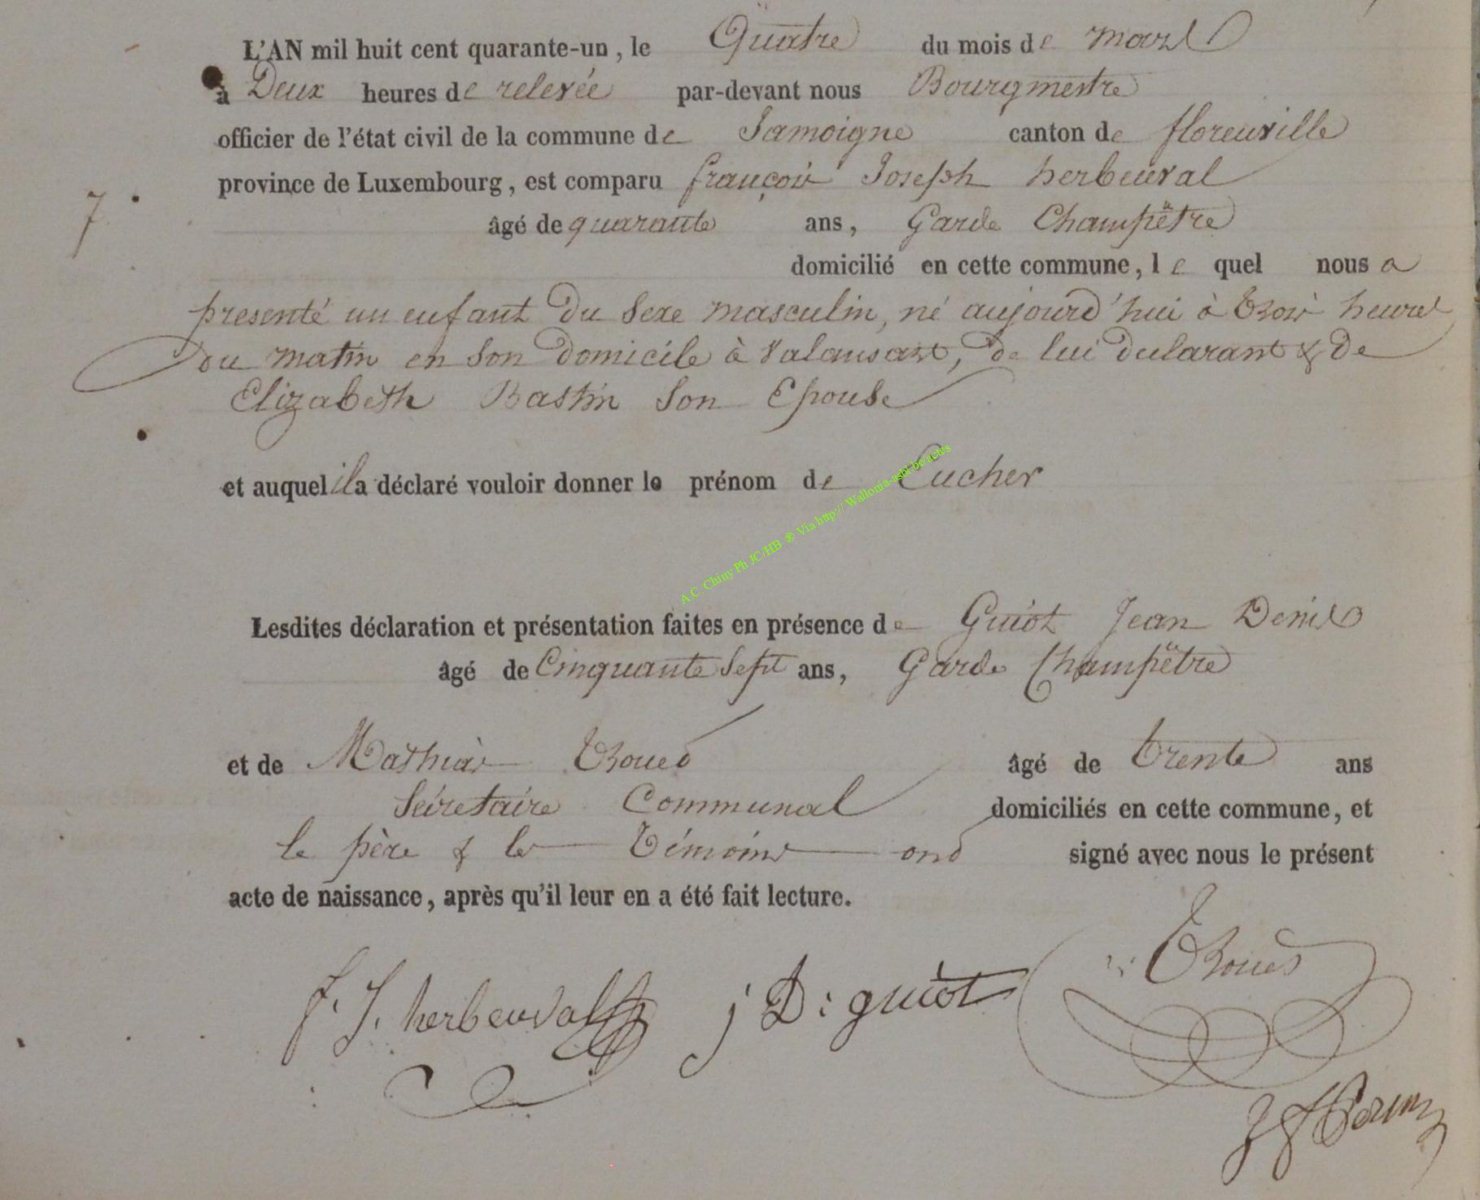 L'AN mil huit cent quarante-un, le Quatre du mois de mars
à Deux heures de relevée par-devant nous Bourgmestre
officier de l'état civil de la commune de Jamoigne canton de florenville
province de Luxembourg, est comparu françois Joseph herbeuval
7.
âgé de quarante ans, Garde Champêtre
domicilié en cette commune, le quel nous a
presenté un enfant du sexe masculin, né aujourd'hui à trois heures
du matin en son domicile à Valansart, de lui déclarant & de
Elizabeth Bastin son Epouse
et auquel il a déclaré vouloir donner le prénom de Eucher
A.C Chiny Ph JC/HB ® Via http://
Lesdites déclaration et présentation faites en présence de Guiot Jean Denis
âgé de Cinquante Sept ans, Garde Champêtre
et de Mathias Thoues âgé de trente ans
Sécretaire Communal domiciliés en cette commune, et
le père & les Témoins ond signé avec nous le présent
acte de naissance, après qu'il leur en a été fait lecture.
f. J. herbeuval j D: guiot Thoues